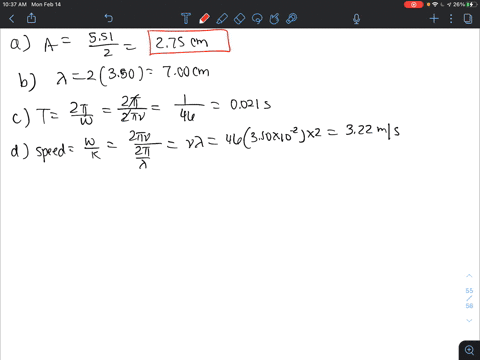 10:37 AM Mon Feb 14
26%
a) A = 5.51/2 = 2.75 cm
b) λ = 2(3.50) = 7.00 cm
c) T = 2π/w = 2π/2πν = 1/46 = 0.021 s
d) speed = w/k = 2πν/(2π/λ) = νλ = 46(3.50×10⁻²)×2 = 3.22 m/s
55
56